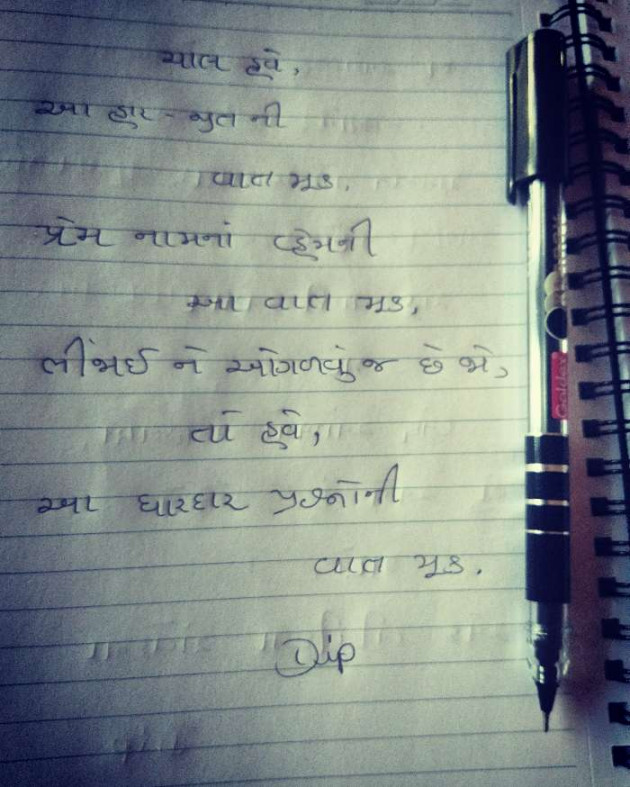 ચાલ હવે,
આ હાર - જીત ની
વાત મૂક.
પ્રેમ નામનાં વ્હેમની
આ વાત મૂક,
ભીંજાઈ ને ઓગળવું જ છે જો,
તો હવે,
આ ધારદાર પ્રશ્નોની
વાત મૂક.
Dip